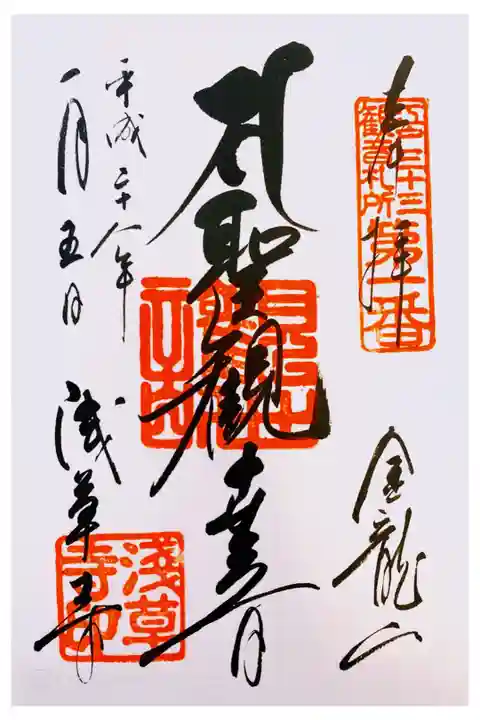 奉拝
江戸三十三
観音札所
第一番
金龍山
聖観世音
平成二十八年
一月五日
浅草寺
淺草
寺印